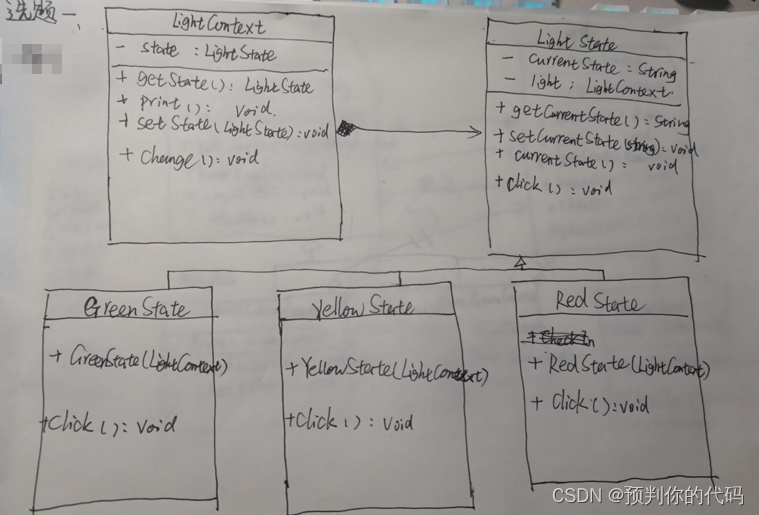 选题一、
LightContext
- state : LightState
+ getState() : LightState
+ print() : void.
+ setState(LightState) : void
+ change() : void
Light State
- currentState : String
- light : LightContext
+ getCurrentState() : String
+ setCurrentState(string) : void
+ currentState() : void
+ click() : void
GreenState
+ GreenState(LightContext)
+ Click() : void
Yellow State
+ YellowStarte(LightContext)
+ Click() : void
Red State
+ CheckIn
+ RedState(LightContext)
+ Click() : void
CSDN @预判你的代码